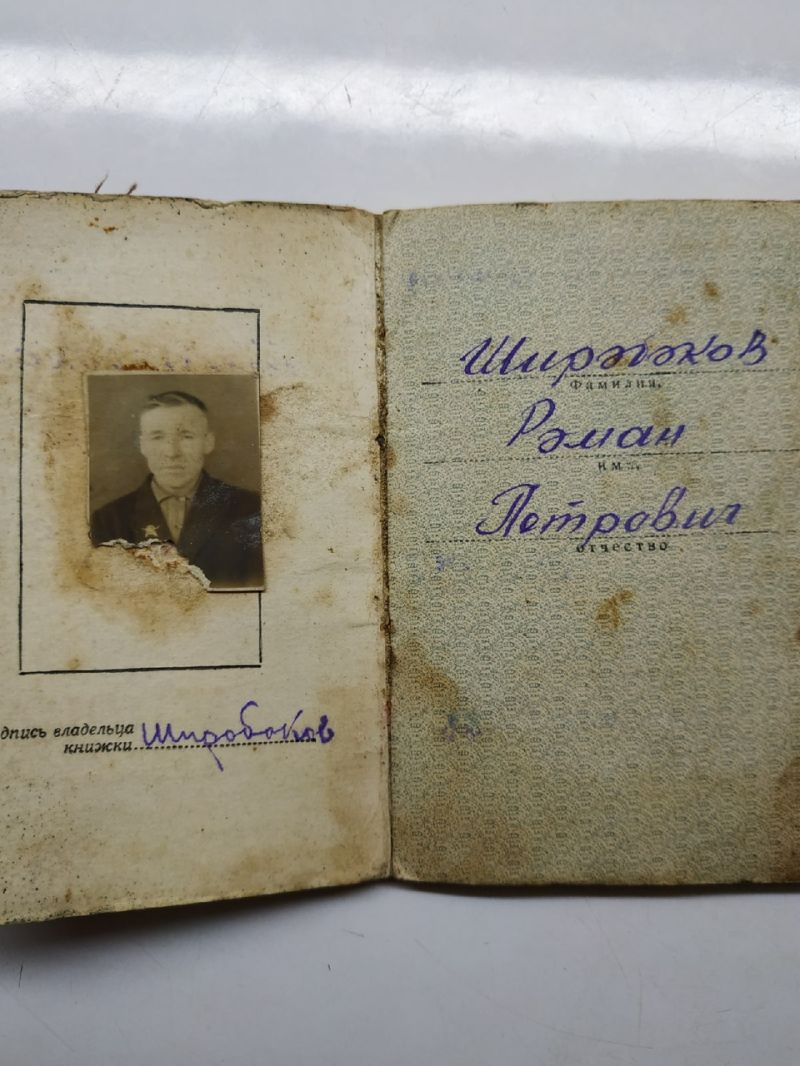 подпись владельца
книжки Широбоков
Широбоков
Фамилия,
Роман
имя,
Петрович
отчество